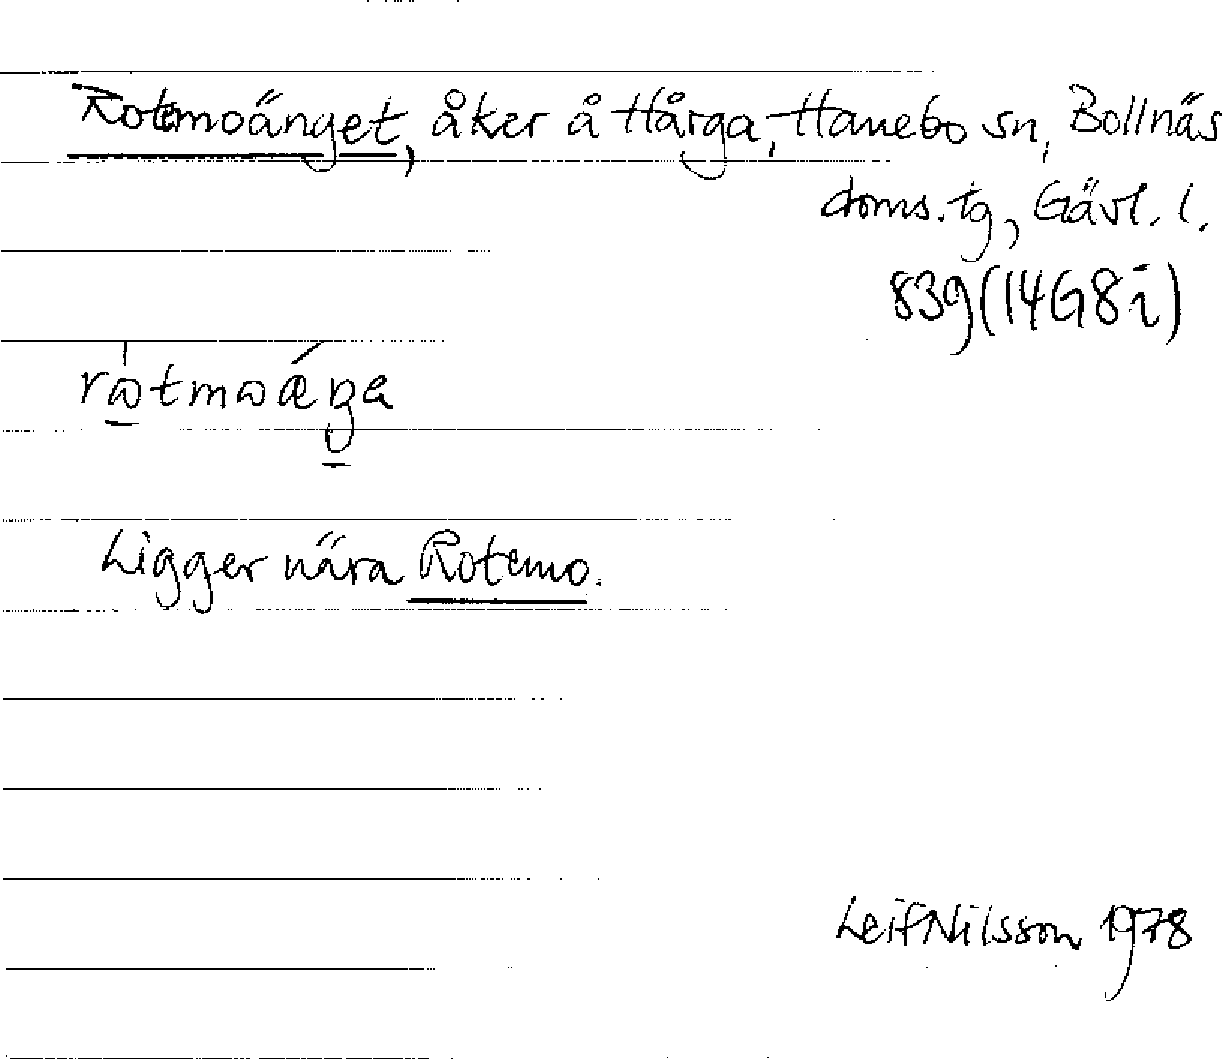 Rotemoänget, åker å Hårga, Hanebo sn, Bollnäs
doms. tg, Gävl. l.
83g (14G8i)
Ligger nära Rotemo.
Leif Nilsson 1978